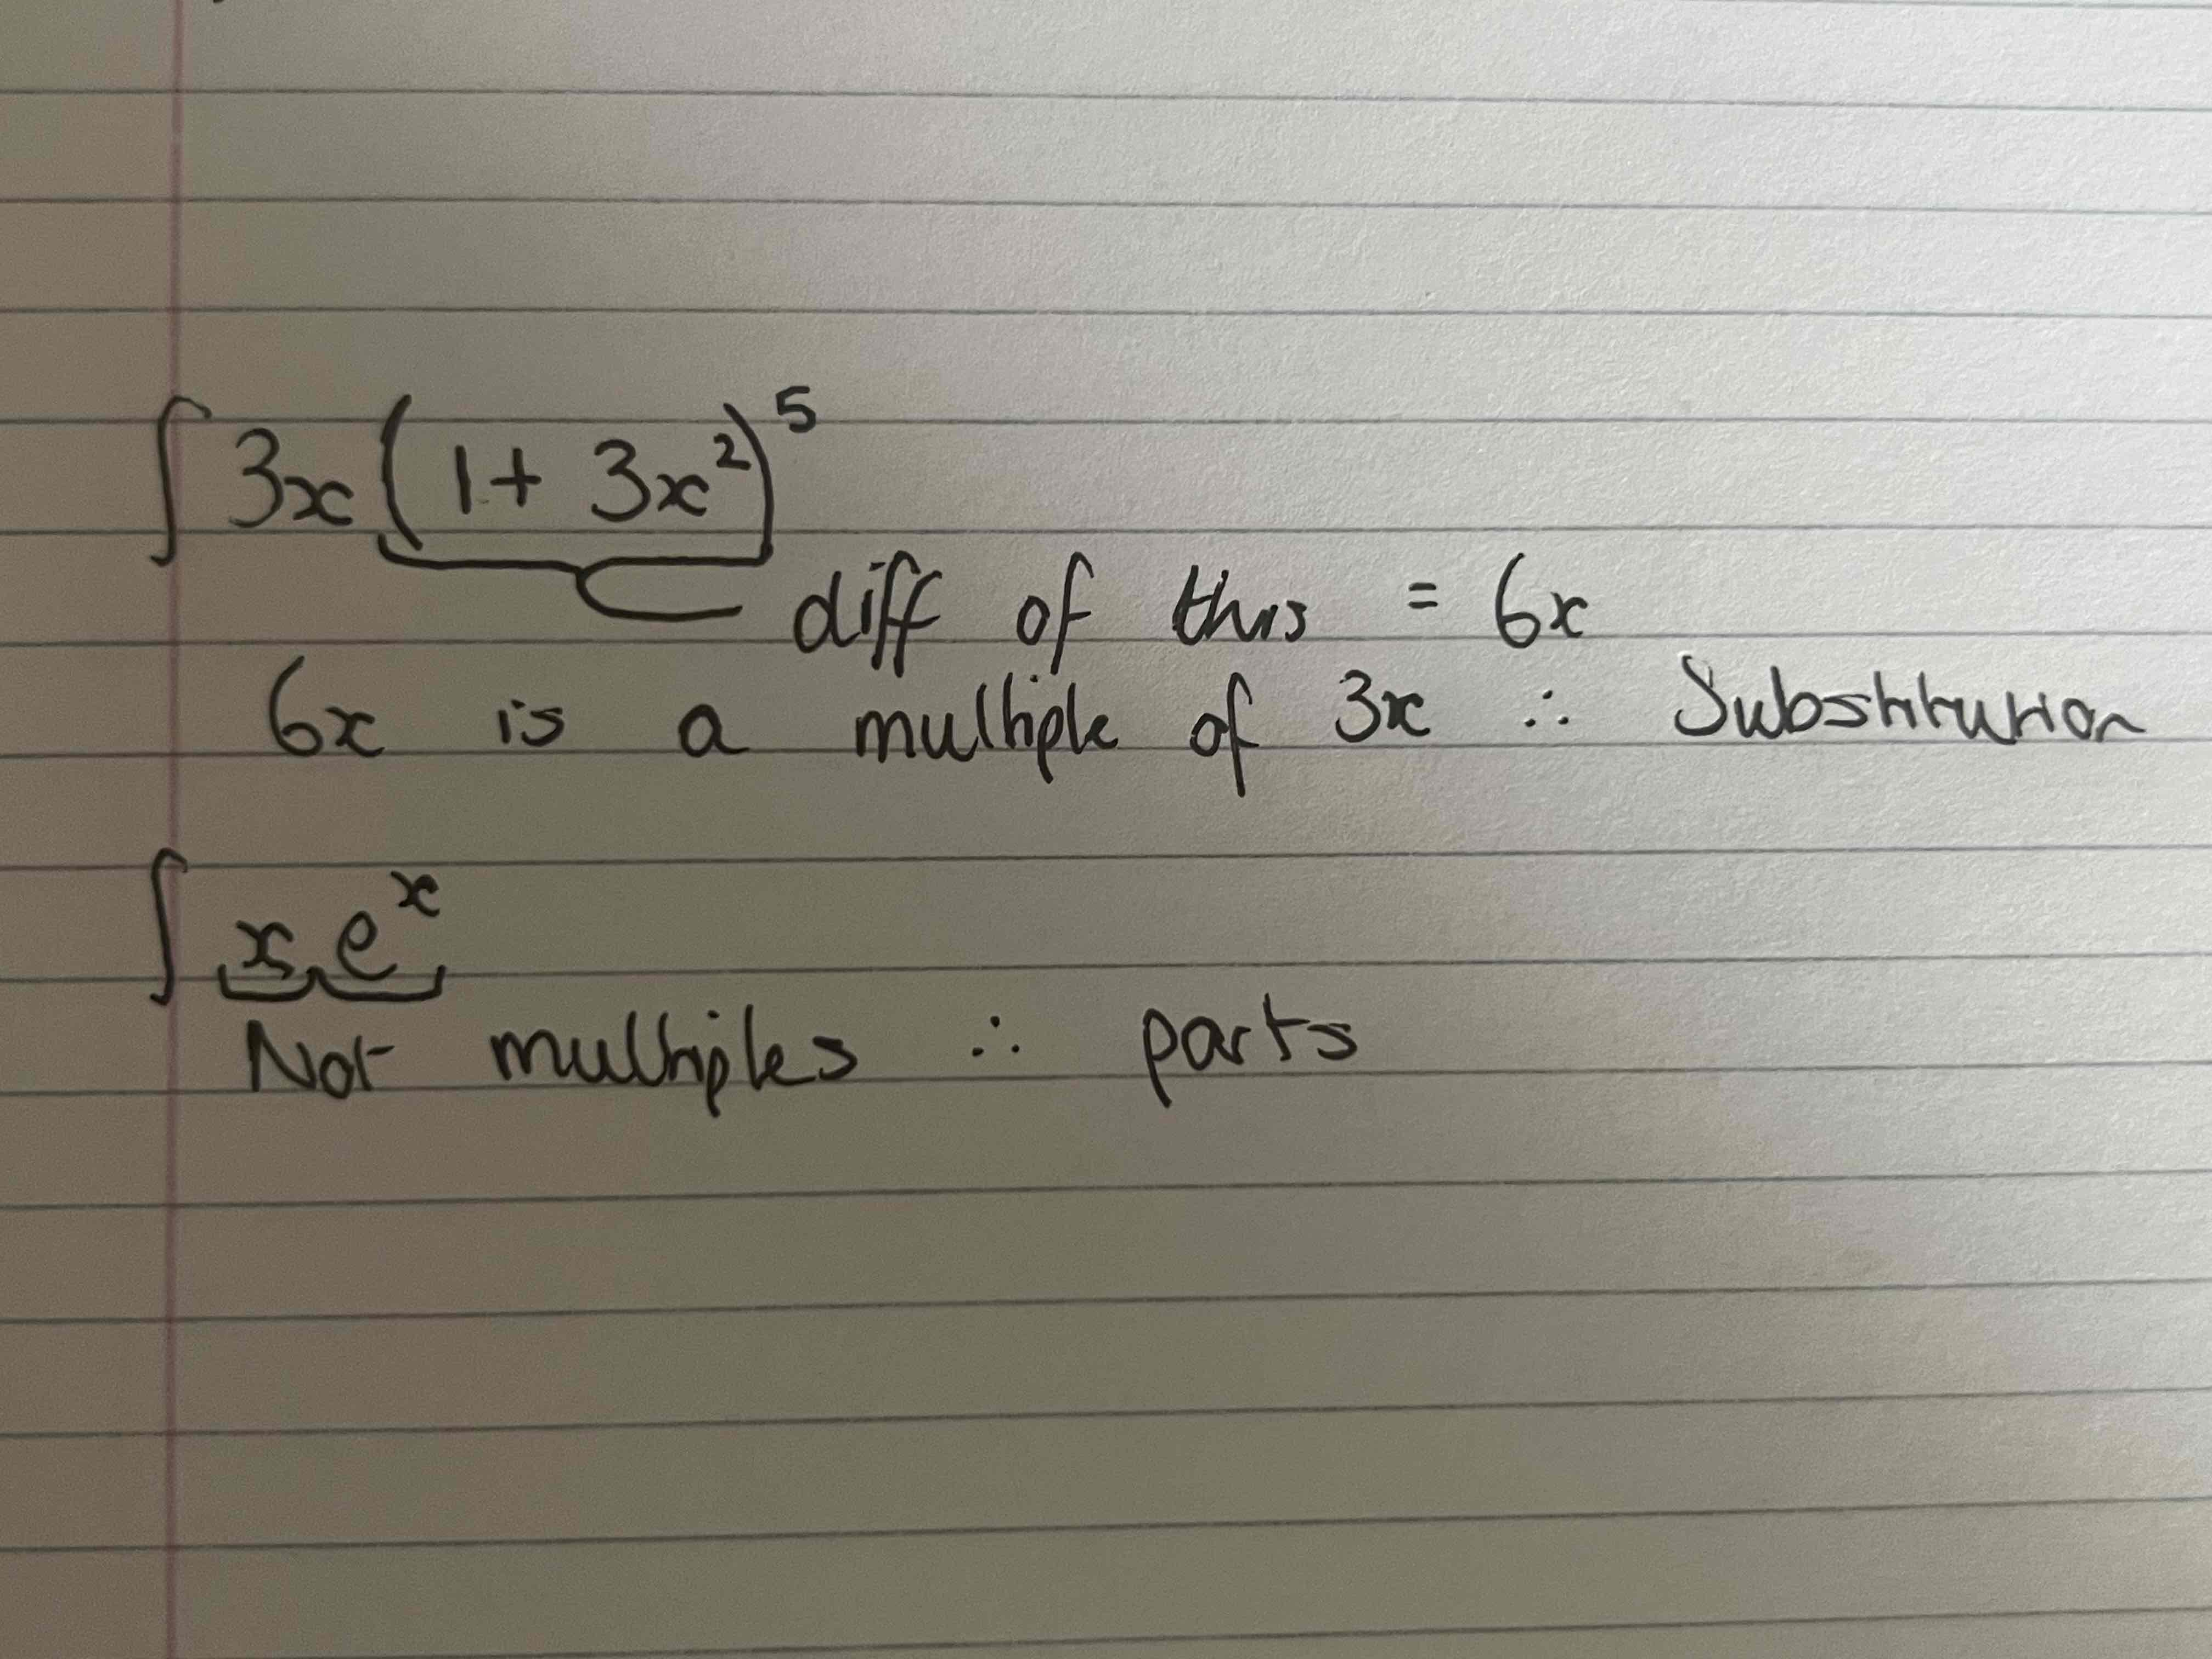 ∫ 3x (1 + 3x²)⁵
diff of this = 6x
6x is a multiple of 3x ∴ Substitution
∫ x eˣ
Not multiples ∴ parts